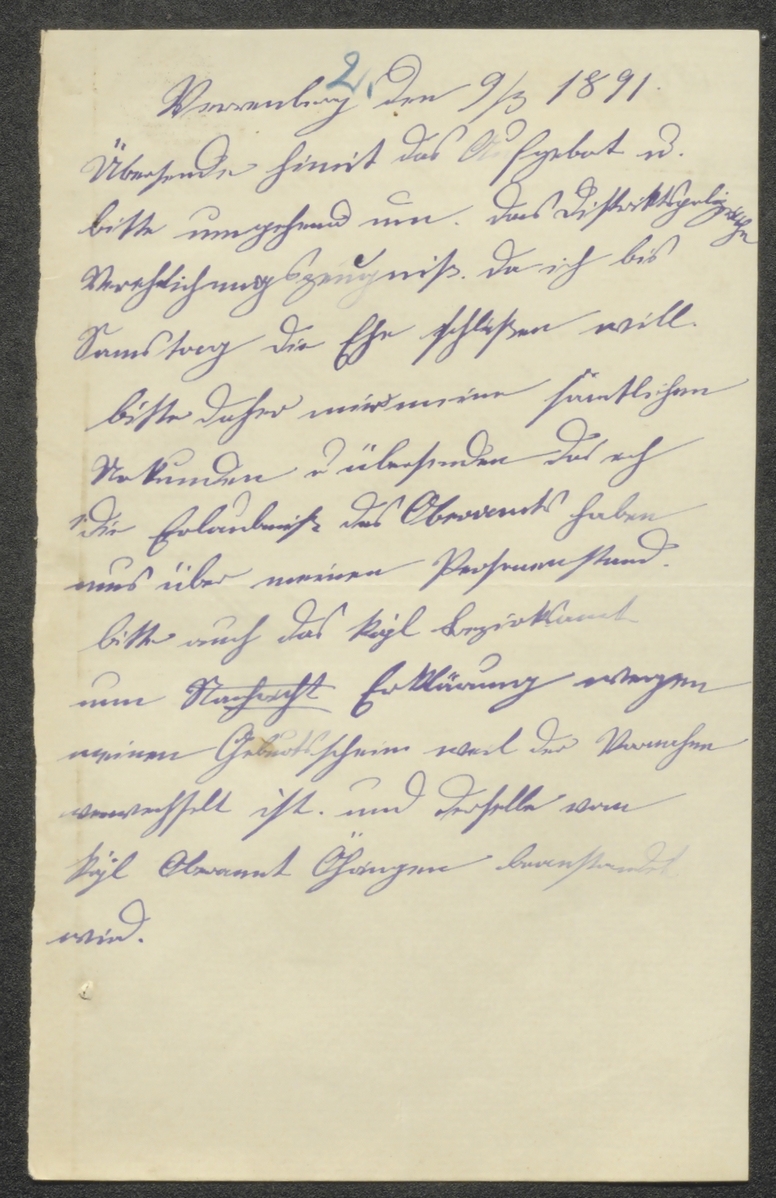 2.
Verrenberg den 9/3 1891.
Übersende himit das Aufgebot u.
bitte umgehend um. das Distriktspolizeiliche
Verehlichungszeugniß. da ich bis
Samstag die Ehe schlißen will.
bitte daher mir meine sämtlichen
Urkunden z übersenden das ich
die Erlaubniß des Oberamts haben
mus über meinen Personenstand.
bitte auch das kgl Bezirksamt
um Nachricht Erklärung wegen
meinen Geburtsschein weil der Vornahmen
verwechselt ist. und derselbe vom
kgl Oberamt Öhringen beanstandet
wird.